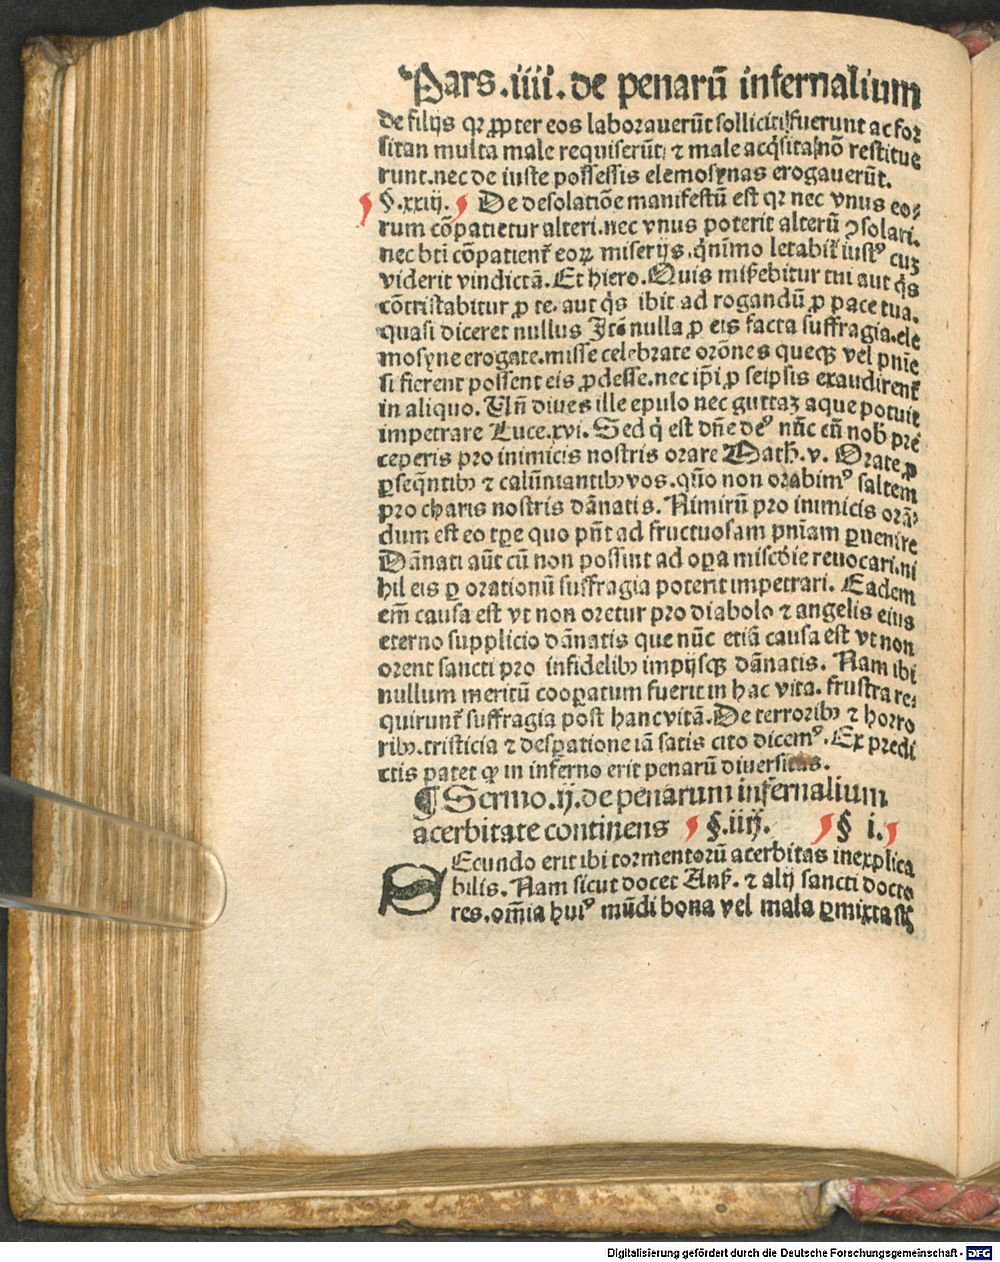 Pars .iiii. de penarū infernalium
de filijs qꝛ ꝓpter eos laborauerūt solliciti fuerunt ac for
sitan multa male requiserūt ⁊ male acq̇sita nō restitue
runt. nec de iuste possessis elemosynas erogauerūt.
§.xxiij. De desolatiōe manifestū est qꝛ nec vnus eo⸗
rum cōpatietur alteri. nec vnus poterit alterū ꝯsolari.
nec bt̄i cōpatient̄ eoꝝ miserijs. q̇nimo letabit̄ iustꝰ cuꝫ
viderit vindictā. Et hiero. Quis miẞebitur tui aut q̇s
cōtristabitur ꝓ te. aut q̇s ibit ad rogandū ꝓ pace tua.
quasi diceret nullus Itē nulla ꝓ eis facta suffragia. ele
mosyne erogate. misse celebrate orōnes quecꝫ vel pn̄ie
si fierent possent eis ꝓdesse. nec ip̄i ꝓ seipsis exaudirent̄
in aliquo. Un̄ diues ille epulo nec guttaꝫ aque potuit
impetrare Luce.xvi. Sed q̇ est dn̄e deꝰ nūc cū nob̄ pre
ceperis pro inimicis nostris orare Math̄.v. Orate ꝓ
ꝑseq̄ntibꝰ ⁊ calūniantibꝰ vos. quo non orabimꝰ saltem
pro charis nostris dānatis. Nimirū pro inimicis orā⸗
dum est eo tꝑe quo pn̄t ad fructuosam pn̄iam ꝑuenire
Dānati aūt cū non possint ad oꝑa misc̄die reuocari. ni
hil eis ꝑ orationū suffragia poterit impetrari. Eadem
em̄ causa est vt non oretur pro diabolo ⁊ angelis eius
eterno supplicio dānatis que nūc etiā causa est vt non
orent sancti pro infidelibꝰ impijscꝫ dānatis. Nam ibi
nullum meritū cooꝑatum fuerit in hac vita. frustra re⸗
quirunt̄ suffragia post hanc vitā. De terroribꝰ ⁊ horro
ribꝰ. tristicia ⁊ desꝑatione iā satis cito dicemꝰ. Ex predi
ctis patet ꝙ in inferno erit penarū diuersitas.
¶ Sermo.ij. de penarum infernalium
acerbitate continens §.iiij. § i.
SEcundo erit ibi tormentorū acerbitas inexplica
bilis. Nam sicut docet Ans̄. ⁊ alij sancti docto
res. om̄ia huiꝰ mūdi bona vel mala ꝑmixta s̄t
Digitalisierung gefördert durch die Deutsche Forschungsgemeinschaft - DFG